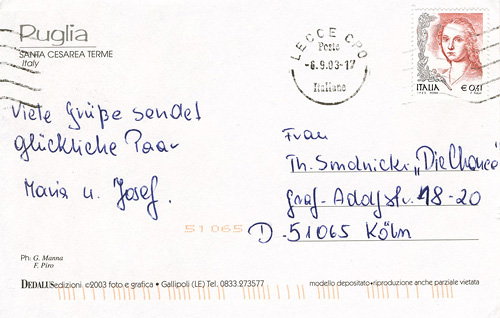 Puglia
SANTA CESAREA TERME
Italy
LECCE CPO
Poste
-6.9.03-17
Italiane
ITALIA € 0,41
Viele Grüße sendet
glückliche Paar
Maria u. Josef.
Frau
Th. Smolnicki "Die Chance"
Graf-Adolfstr. 18-20
D-51065 Köln
51065
Ph: G. Manna
F. Piro
DEDALUSedizioni ©2003 foto e grafica • Gallipoli (LE) Tel. 0833.273577
modello depositato•riproduzione anche parziale vietata